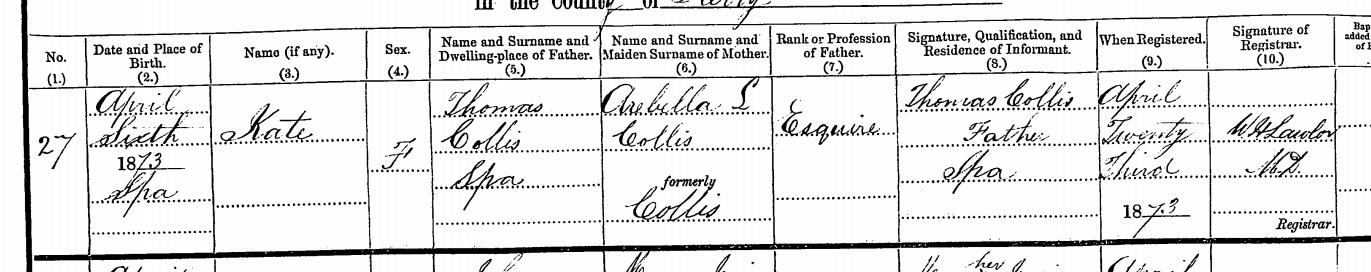 in the County of Kerry
No. (1.)
Date and Place of Birth. (2.)
Name (if any). (3.)
Sex. (4.)
Name and Surname and Dwelling-place of Father. (5.)
Name and Surname and Maiden Surname of Mother. (6.)
Rank or Profession of Father. (7.)
Signature, Qualification, and Residence of Informant. (8.)
When Registered. (9.)
Signature of Registrar. (10.)
Bap
added
of
27
April
Sixth
1873
Spa
Kate
F
Thomas
Collis
Spa
Arebella L
Collis
formerly
Collis
Esquire
Thomas Collis
Father
Spa
April
Twenty
Third
1873
W H Lawlor
M.D.
Registrar.
April
her
April